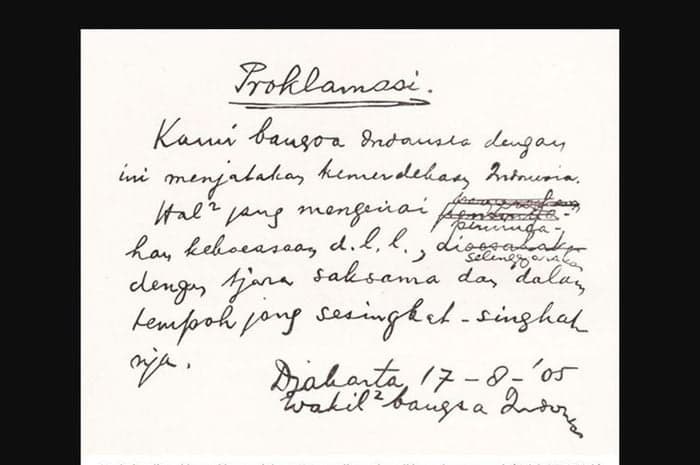 Proklamasi.
Kami bangsa Indonesia dengan
ini menjatakan kemerdekaan Indonesia.
Hal² jang mengenai
peminda-
han kekoeasaan d.l.l.,
diselenggarakan
dengan tjara saksama dan dalam
tempoh jang sesingkat-singkat
nja.
Djakarta 17-8-'05
Wakil² bangsa Indonesia